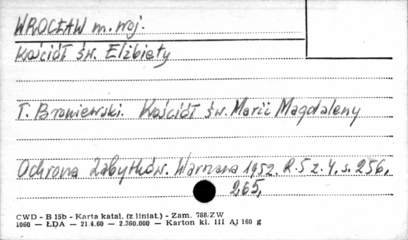 WROCŁAW m. woj.
Kościół św. Elżbiety
T. Broniewski. Kościół św. Marii Magdaleny
Ochrona Zabytków. Warszawa 1952. R. 5 z. 4, s. 256,
265,
CWD - B 15b - Karta katal. (z liniat.) - Zam. 788/ZW
1060 — ŁDA — 21.4.60 — 2.360.000 — Karton kl. III A1 160 g